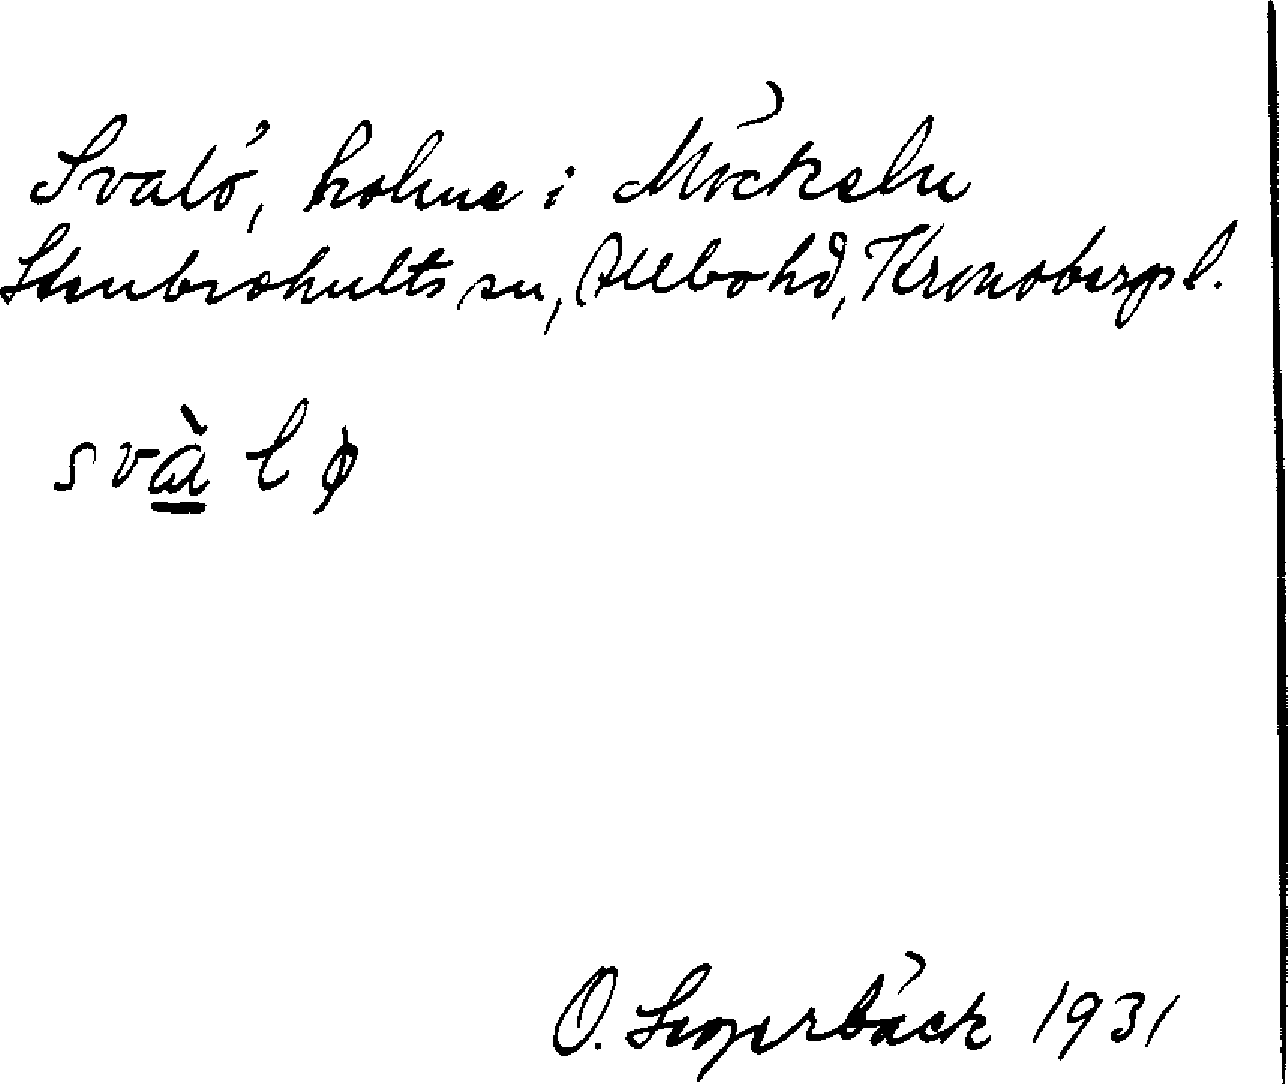 Svalö, holme i Möckeln
Stenbrohults sn, Allbo hd, Kronobergs l.
svà l ø
O. Segerbäck 1931